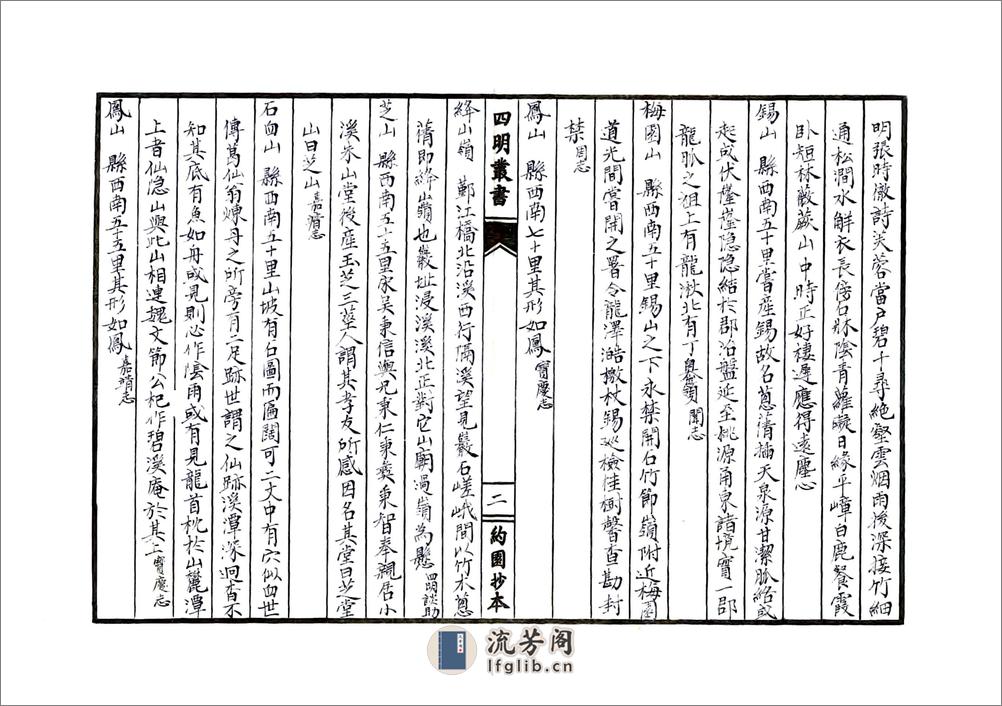 明張時徹詩芙蓉當戶碧千尋絶壑雲烟雨後深接竹細
通松澗水解衣長傍石牀陰青蘿礙日緣平嶂白鹿餐霞
卧短林薇蕨山中時正好棲遲應得遠塵心
錫山 縣西南五十里嘗産錫故名蔥蒨插天泉源甘潔脈絡或
起或伏隱隱結於郡治盤延至桃源甬東諸境實一郡
龍脈之祖上有龍湫北有丁嶴嶺聞志
梅園山 縣西南五十里錫山之下永禁開石竹節嶺附近梅園
道光間嘗開之署令龍澤澔檄杖錫巡檢佳樹聲查勘封
禁周志
鳳山 縣西南七十里其形如鳳寶慶志
四明叢書
二
約園抄本
絳山嶺 鄞江橋北沿溪西行隔溪望見巖石嵯峨間以竹木蔥
蒨即絳嶺也巖址浸溪溪北正對它山廟過嶺為懸四明談助
芝山 縣西南五十五里宋吳秉信與兄秉仁秉彝秉智奉親居小
溪岙山堂後産玉芝三莖人謂其孝友所感因名其堂曰芝堂
山曰芝山嘉靖志
石臼山 縣西南五十里山坡有石圓而匾闊可二丈中有穴似臼世
傳葛仙翁煉丹之所旁有二足跡世謂之仙跡溪潭深洞杳不
知其底有魚如丹或見則必作雲雨或有見龍首枕於山麓潭
上者仙隐山與此山相連魏文節公杞作碧溪庵於其上寶慶志
鳳山 縣西南五十五里其形如鳳嘉靖志
流芳阁
lfglib.cn